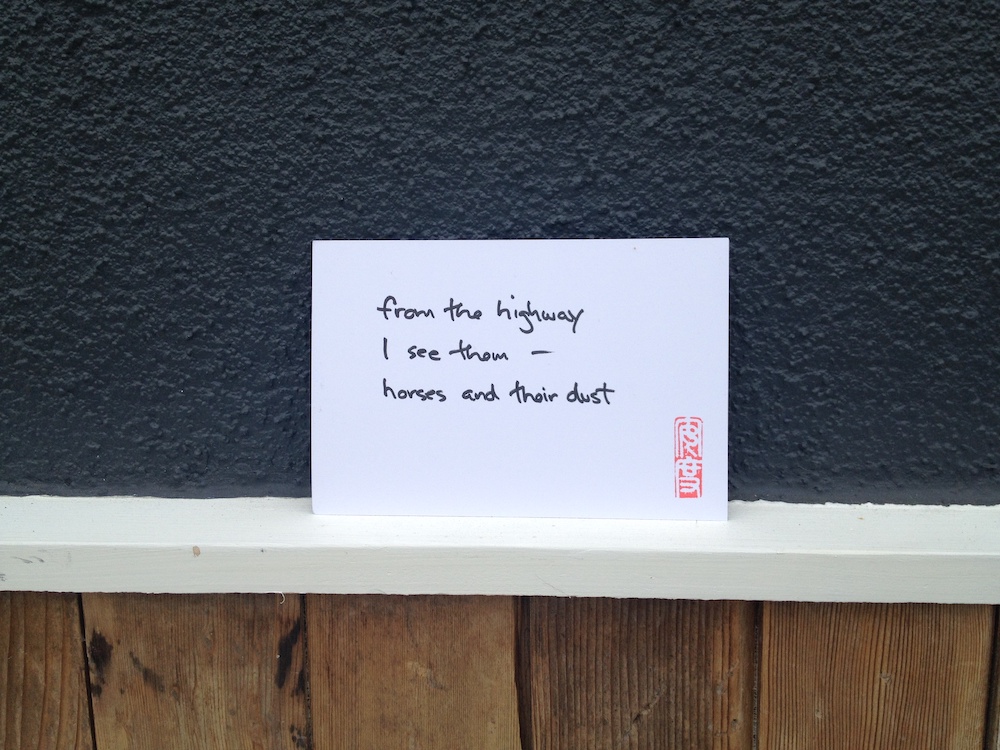 from the highway
I see them —
horses and their dust